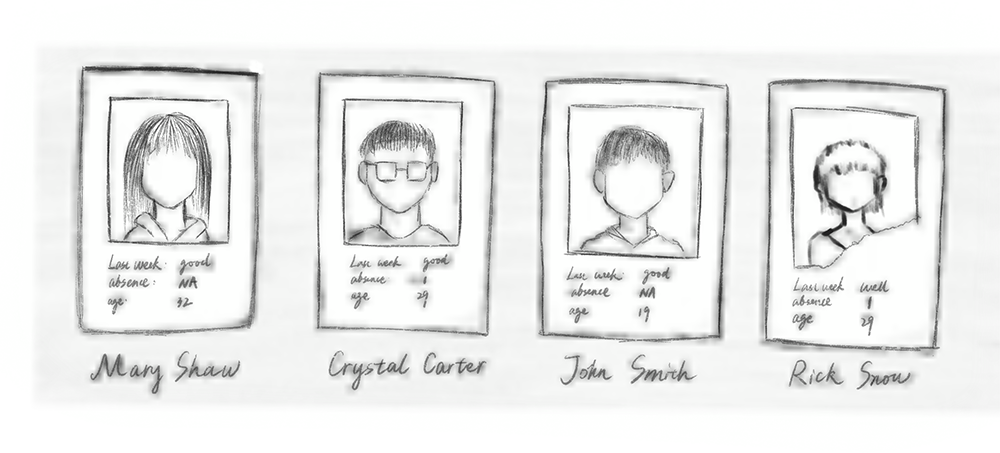 Last week: good
absence: NA
age: 32
Mary Shaw
Last week good
absence 1
age 29
Crystal Carter
Last week good
absence NA
age 19
John Smith
Last week well
absence 1
age 29
Rick Snow